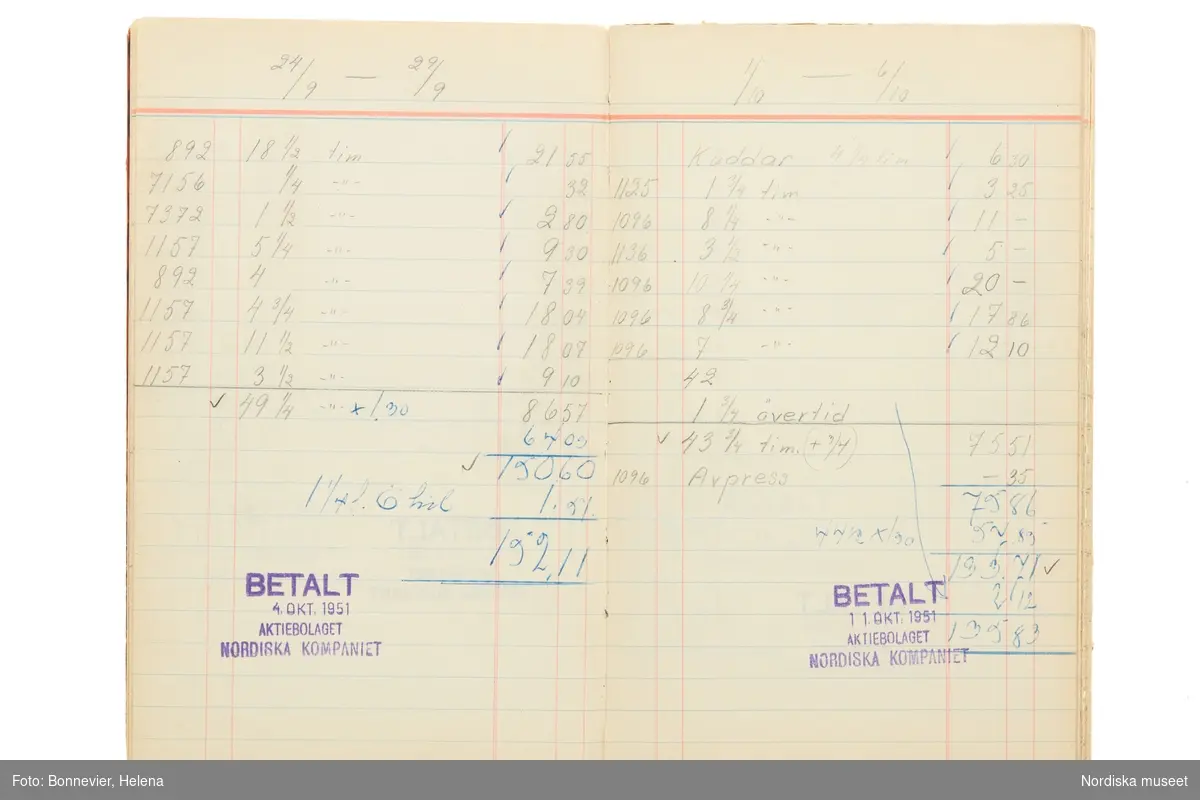 24/9 — 29/9
892 18 1/2 tim 21 55
7156 1/4 -"- 32
7372 1 1/2 -"- 2 80
1157 5 1/4 -"- 9 30
892 4 -"- 7 39
1157 4 3/4 -"- 18 04
1157 11 1/2 -"- 18 07
1157 3 1/2 -"- 9 10
49 1/4 -"- x 1.30 86 57
150 60
1.51
152,11
BETALT
4. OKT. 1951
AKTIEBOLAGET
NORDISKA KOMPANIET
1/10 — 6/10
Kuddar 4 1/4 tim 6 30
1125 1 3/4 tim 3 25
1096 8 1/4 -"- 11 -
1136 3 1/2 -"- 5 -
1096 10 1/4 -"- 20 -
1096 8 3/4 -"- 17 86
1096 7 -"- 12 10
42
1 3/4 övertid
43 3/4 tim. (+ 3/4) 75 51
1096 Avpress - 35
75 86
57,85
133,71
2/12
135 83
BETALT
11. OKT. 1951
AKTIEBOLAGET
NORDISKA KOMPANIET
Foto: Bonnevier, Helena
Nordiska museet